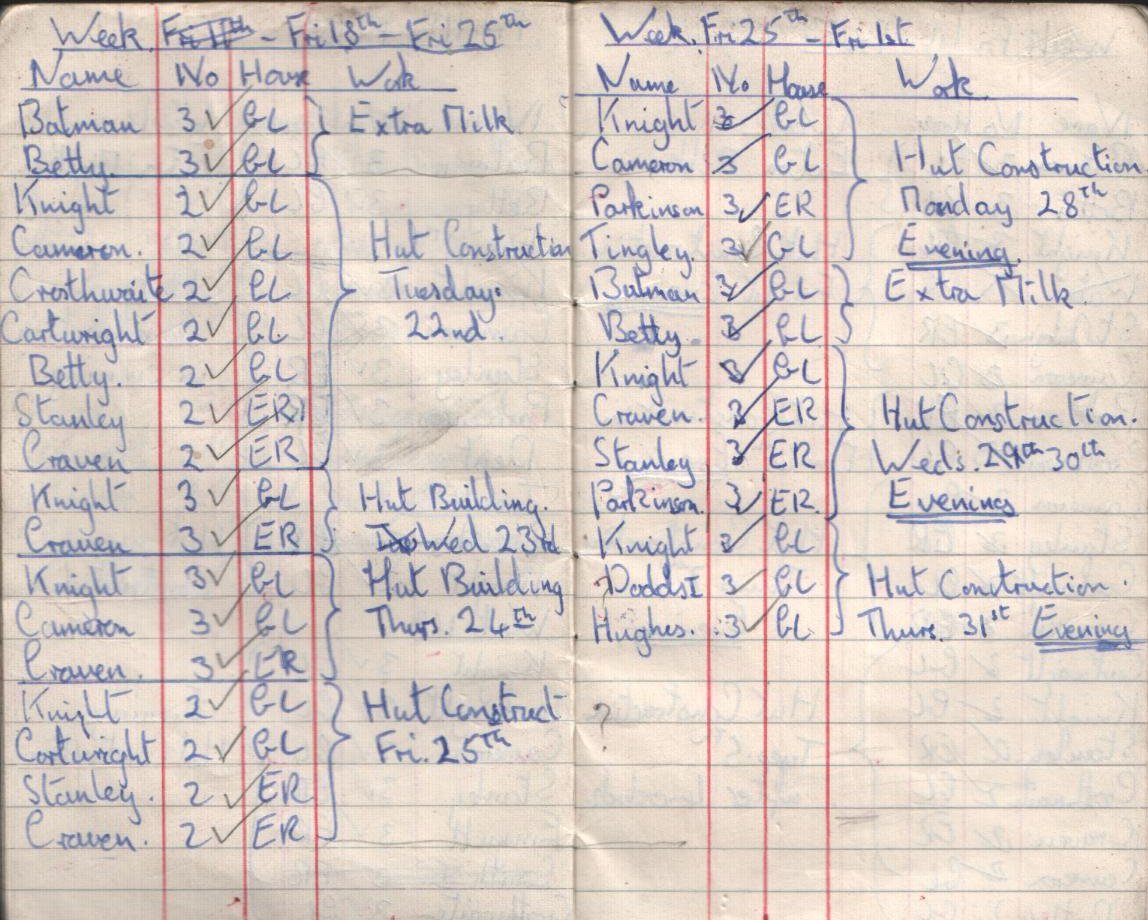 Week. Fri 11th - Fri 18th - Fri 25th
Name No House Work
Batman 3 ✓ GL Extra Milk
Betty. 3 ✓ GL
Knight 2 ✓ GL
Cameron. 2 ✓ GL Hut Construction
Crosthwaite 2 ✓ GL Tuesday.
Cartwright 2 ✓ GL 22nd.
Betty. 2 ✓ GL
Stanley 2 ✓ ER
Craven 2 ✓ ER
Knight 3 ✓ GL Hut Building.
Craven 3 ✓ ER Wed 23rd
Knight 3 ✓ GL Hut Building
Cameron 3 ✓ GL Thurs. 24th
Craven. 3 ✓ ER
Knight 2 ✓ GL Hut Construct
Cartwright 2 ✓ GL Fri. 25th
Stanley. 2 ✓ ER
Craven. 2 ✓ ER
Week. Fri 25th - Fri 1st
Name No House Work
Knight 3 ✓ GL
Cameron 3 ✓ GL Hut Construction
Parkinson 3 ✓ ER Monday 28th
Tingley. 3 ✓ GL Evening.
Batman 3 ✓ GL Extra Milk
Betty. 3 ✓ GL
Knight 3 ✓ GL
Craven. 3 ✓ ER Hut Construction.
Stanley 3 ✓ ER Weds. 30th
Parkinson. 3 ✓ ER. Evenings
Knight 3 ✓ GL
? Dodds I 3 ✓ GL Hut Construction.
Hughes. 3 ✓ GL Thurs. 31st Evening
?